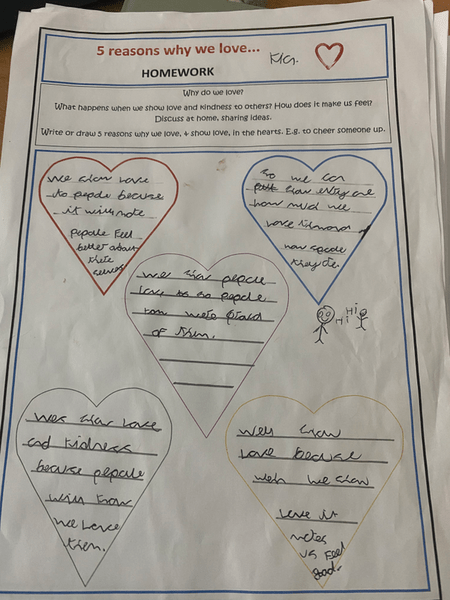 5 reasons why we love...
HOMEWORK
Why do we love?
What happens when we show love and kindness to others? How does it make us feel?
Discuss at home, sharing ideas.
Write or draw 5 reasons why we love, & show love, in the hearts. E.g. to cheer someone up.
we show love
to people because
it will make
pepole Feel
better about
there
selves
So we can
show
how much we
love
how
they are.
We show pepole
love so pepole
know were proud
of them.
Hi
Hi
Wee show love
and kidness
because pepole
will know
we love
them.
Weh show
love because
weh we show
love it
makes
us Feel
Good.